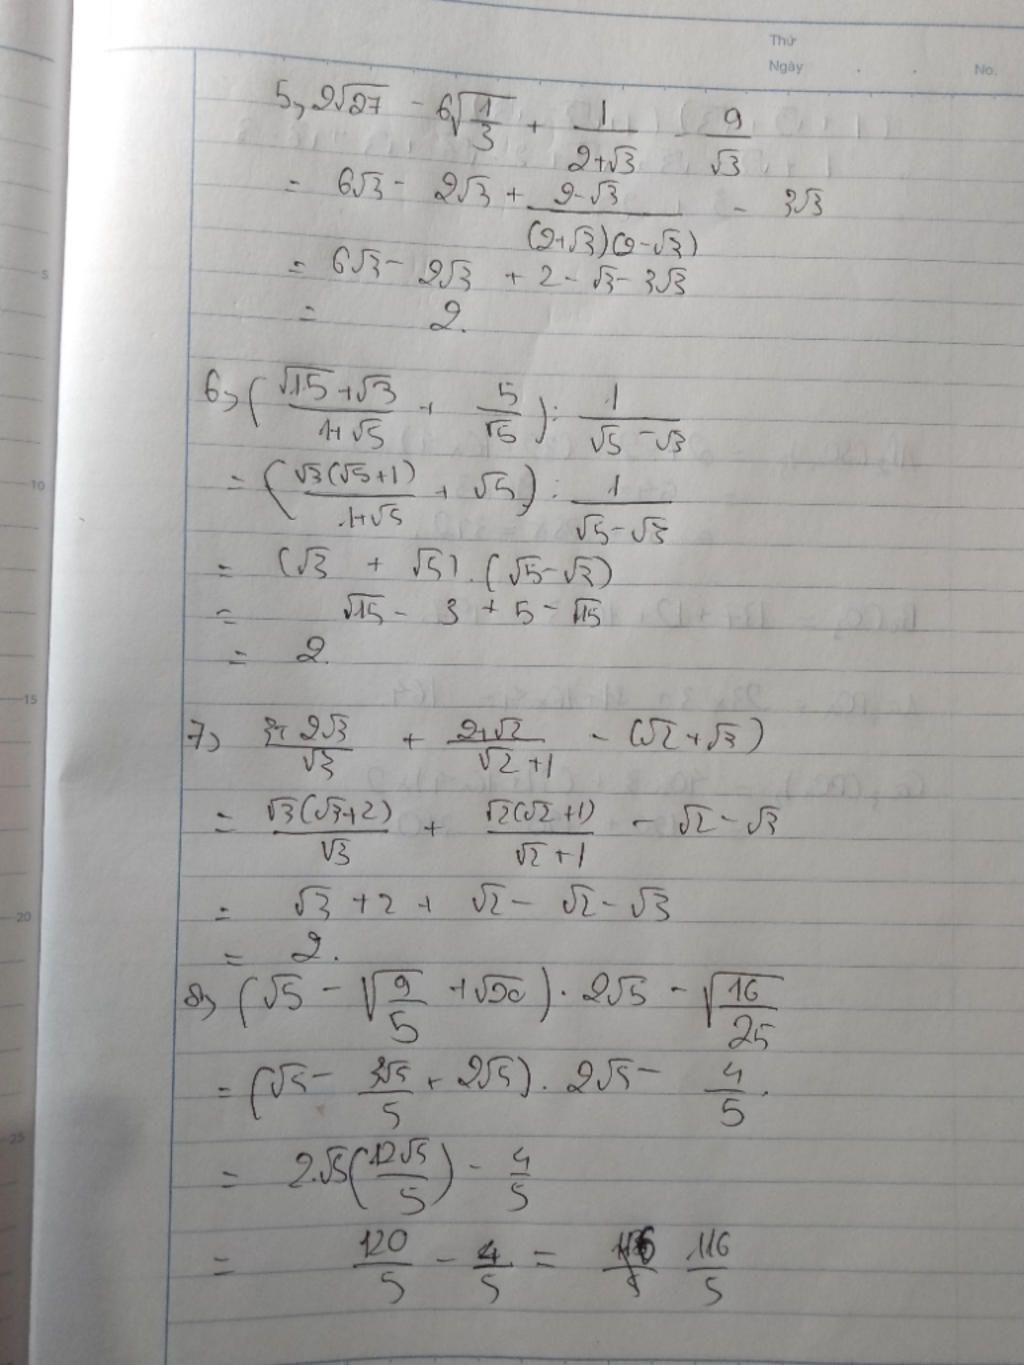 Thứ
Ngày . . No.
5, 2√27 - 6√(1/3) + 1/(2+√3) - 9/√3
= 6√3 - 2√3 + (2-√3)/((2+√3)(2-√3)) - 3√3
= 6√3 - 2√3 + 2 - √3 - 3√3
= 2.
6, ((√15+√3)/(1+√5) + 5/√5) : 1/(√5-√3)
= (√3(√5+1)/(1+√5) + √5) : 1/(√5-√3)
= (√3 + √5) . (√5-√3)
= √15 - 3 + 5 - √15
= 2
7, (3+2√3)/√3 + (2+√2)/(√2+1) - (√2+√3)
= √3(√3+2)/√3 + √2(√2+1)/(√2+1) - √2 - √3
= √3 + 2 + √2 - √2 - √3
= 2.
8, (√5 - √(9/5) + √20) . 2√5 - √(16/25)
= (√5 - 3√5/5 + 2√5) . 2√5 - 4/5.
= 2.√5(12√5/5) - 4/5
= 120/5 - 4/5 = 116/5
5
10
15
20
25